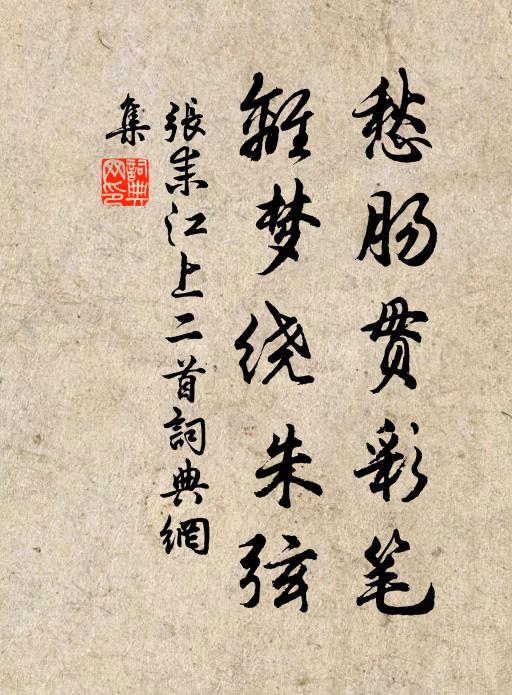 愁肠贯彩笔
離梦绕朱弦
張耒江上二首詞典網
集
詞典网印